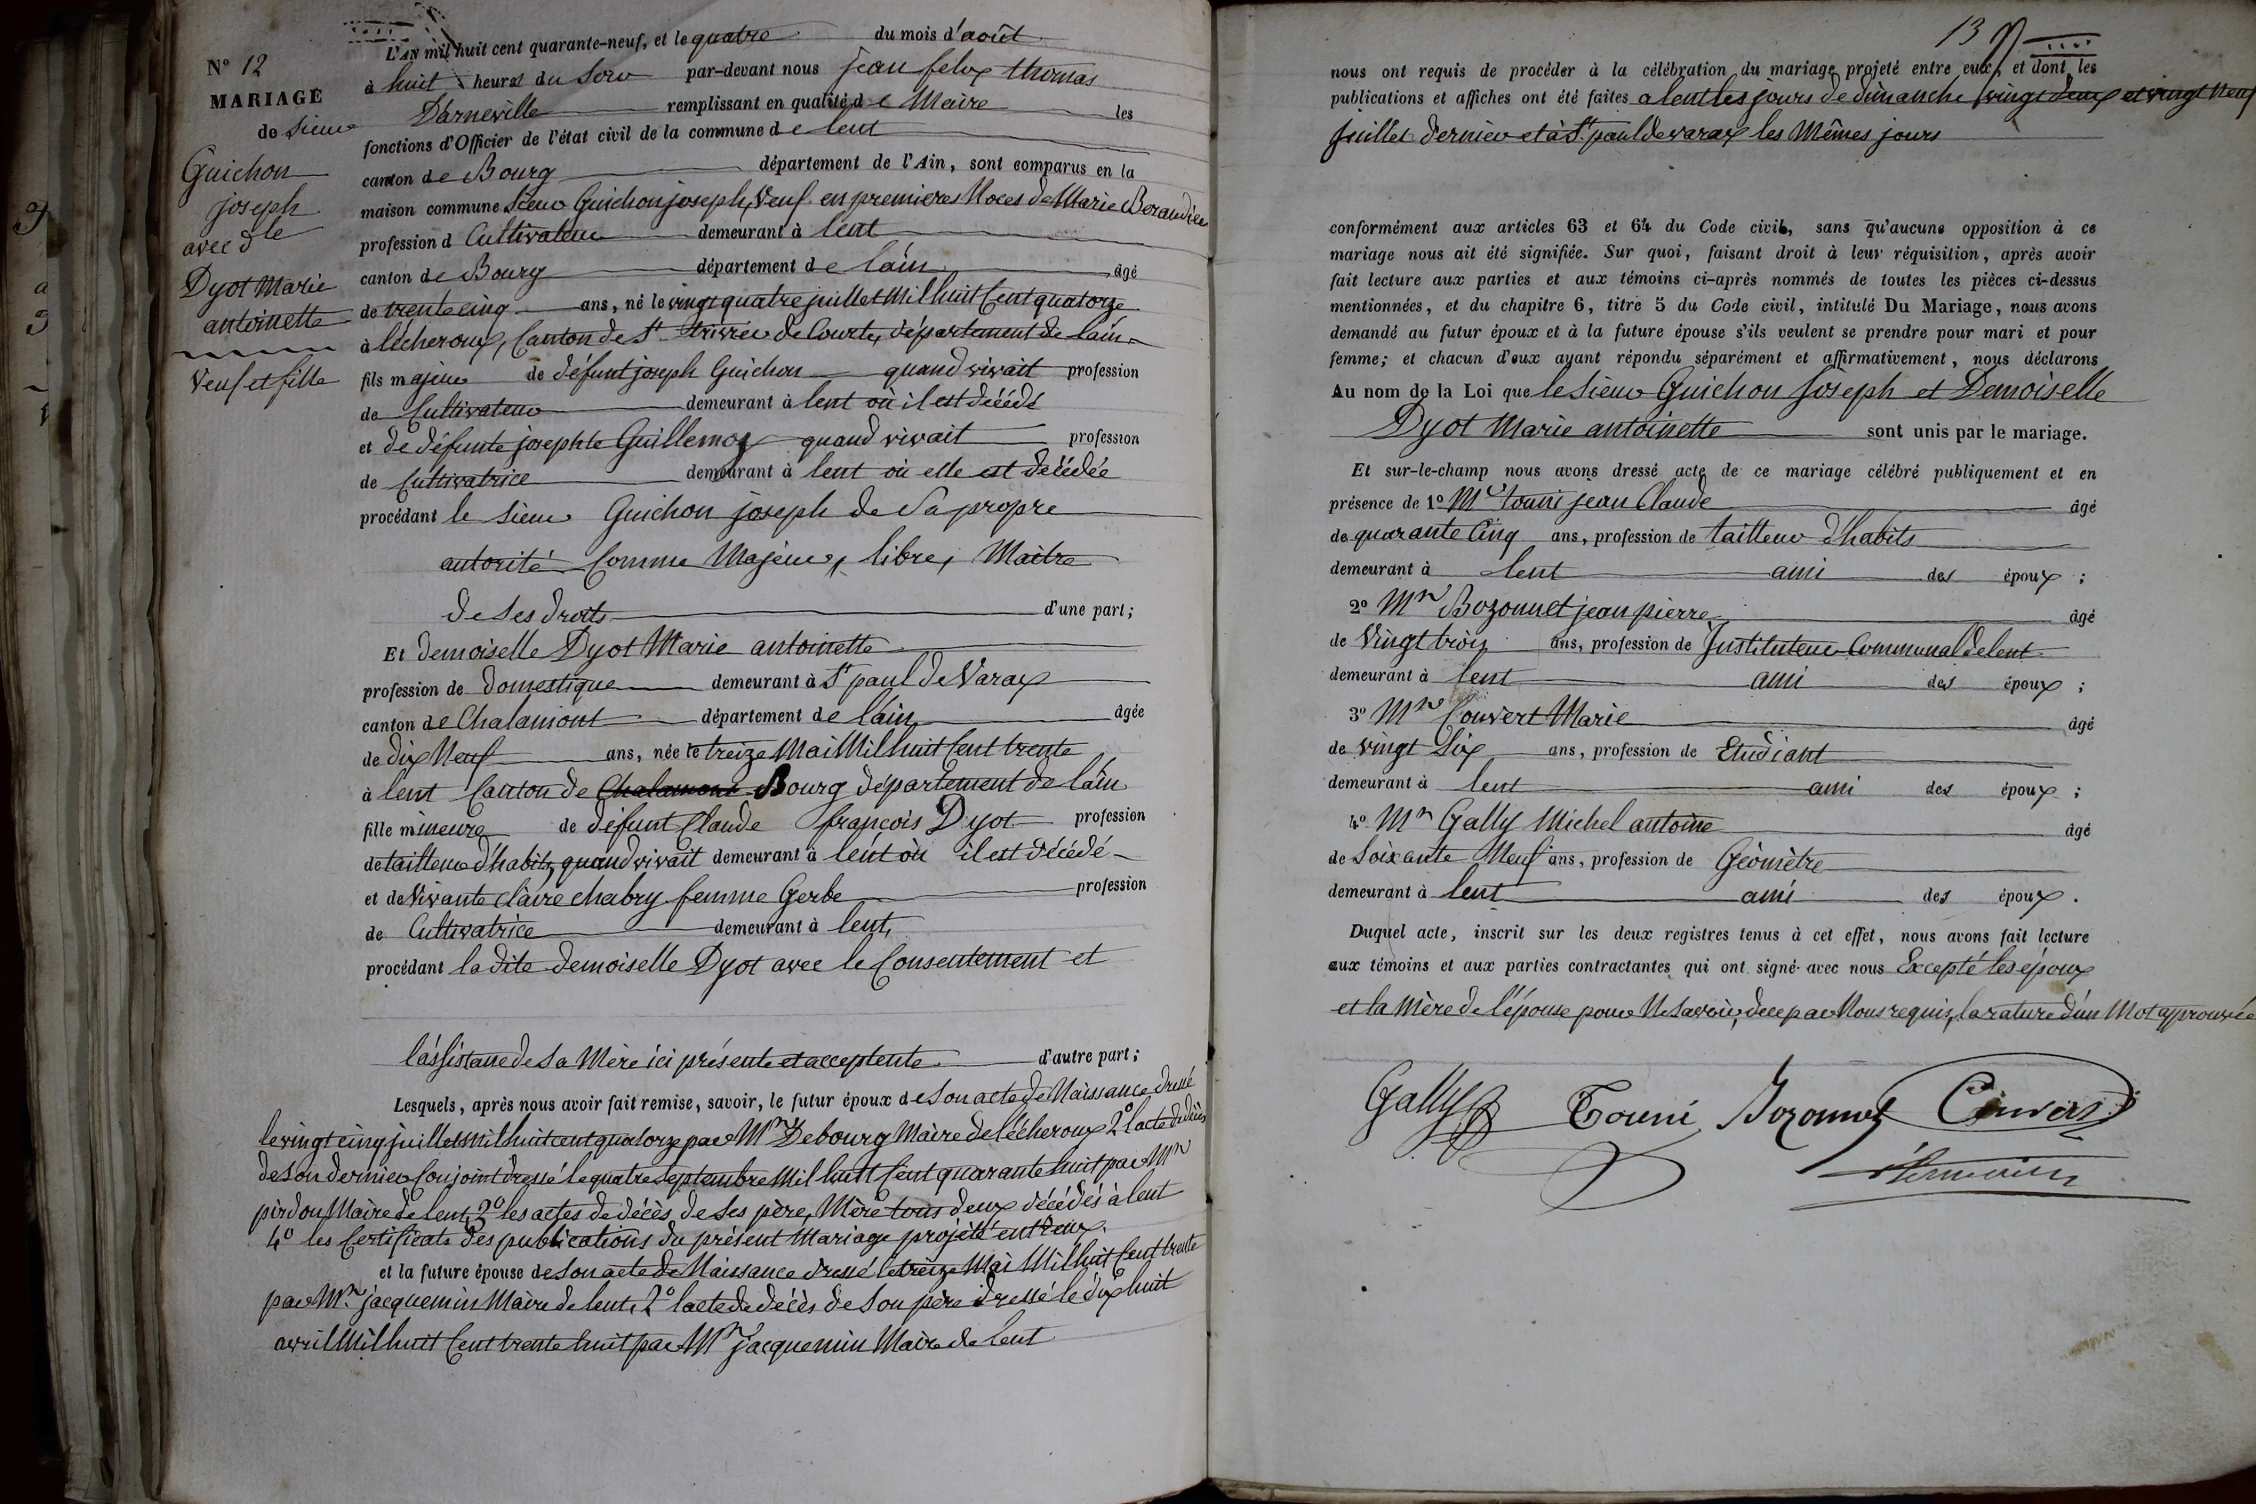 N° 12
MARIAGE
de Sieur
Guichon
joseph
avec dlle
Dyot Marie
antoinette
Veuf et fille
L'AN mil huit cent quarante-neuf, et le quatre du mois d'août
à huit heures du Soir par-devant nous jean felix thomas
Darneville remplissant en qualité de Maire les
fonctions d'Officier de l'état civil de la commune de lent
canton de Bourg département de l'Ain, sont comparus en la
maison commune Sieur Guichon joseph, Veuf en premieres Noces de Marie
profession d Cultivateur demeurant à lent
canton de Bourg département de lain âgé
de trente cinq ans, né le vingt quatre juillet Mil huit Cent quatorze
à lécheroux, Canton de St trivier de Courtes, département de lain
fils majeur de défunt joseph Guichon quand vivait profession
de Cultivateur demeurant à lent où il est décédé
et de défunte josephte Guillemoz quand vivait profession
de Cultivatrice demeurant à lent où elle est décédée
procédant le Sieur Guichon joseph de Sa propre
autorité Comme Majeur, libre, Maitre
de Ses droits d'une part;
Et demoiselle Dyot Marie antoinette
profession de domestique demeurant à St paul de Varax
canton de Chalamont département de lain âgée
de dix Neuf ans, née le treize Mai Mil huit Cent trente
à lent Canton de Chalamont Bourg département de lain
fille mineure de défunt Claude françois Dyot profession
de tailleur d'habits, quand vivait demeurant à lent où il est décédé
et de Vivante Claire chabry femme Gerbe profession
de Cultivatrice demeurant à lent,
procédant la dite demoiselle Dyot avec le Consentement et
l'assistance de Sa Mère ici présente et acceptente d'autre part;
Lesquels, après nous avoir fait remise, savoir, le futur époux de Son acte de Naissance dressé
le vingt cinq juillet mil huit cent quatorze par Mr Debourg Maire de lécheroux 2° lacte de décès
de Son dernier Conjoint dressé le quatre Septembre Mil huit Cent quarante huit par Mr
pirdou Maire de lent, 3° les actes de décès de Ses père, Mère tous deux décédés à lent
4° les Certificats des publications du présent Mariage projété entreux.
et la future épouse de Son acte de Naissance dressé le treize Mai Mil huit Cent trente
par Mr jacquemin Maire de lent, 2° lacte de décès de Son père dressé le dix huit
avril Mil huit Cent trente huit par Mr jacquemin Maire de lent
13
nous ont requis de procéder à la célébration du mariage projeté entre eux, et dont les
publications et affiches ont été faites a lent les jours de dimanche vingt deux et vingt Neuf
juillet dernier et à St paul de varax les Mêmes jours
conformément aux articles 63 et 64 du Code civil, sans qu'aucune opposition à ce
mariage nous ait été signifiée. Sur quoi, faisant droit à leur réquisition, après avoir
fait lecture aux parties et aux témoins ci-après nommés de toutes les pièces ci-dessus
mentionnées, et du chapitre 6, titre 5 du Code civil, intitulé Du Mariage, nous avons
demandé au futur époux et à la future épouse s'ils veulent se prendre pour mari et pour
femme; et chacun d'eux ayant répondu séparément et affirmativement, nous déclarons
Au nom de la Loi que le Sieur Guichon Joseph et Demoiselle
Dyot Marie antoinette sont unis par le mariage.
Et sur-le-champ nous avons dressé acte de ce mariage célébré publiquement et en
présence de 1° Mr touni jean Claude âgé
de quarante Cinq ans, profession de tailleur d'habits
demeurant à lent ami des époux ;
2° Mr Bozonnet jean pierre âgé
de Vingt trois ans, profession de Instituteur Communal de lent
demeurant à lent ami des époux ;
3° Mr Convert Marie âgé
de vingt Six ans, profession de Etudiant
demeurant à lent ami des époux ;
4° Mr Gally Michel antoine âgé
de Soixante Neuf ans, profession de Géomètre
demeurant à lent ami des époux .
Duquel acte, inscrit sur les deux registres tenus à cet effet, nous avons fait lecture
aux témoins et aux parties contractantes qui ont signé avec nous Excepté les époux
et la Mère de l'épouse pour Ne Savoir, de ce par Nous requis, la rature d'un Mot approuvée
Gally Touni Bozonnet Convert